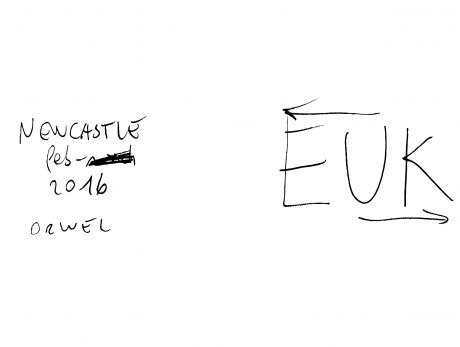 NEWCASTLE
feb-
2016
ORWEL
EUK